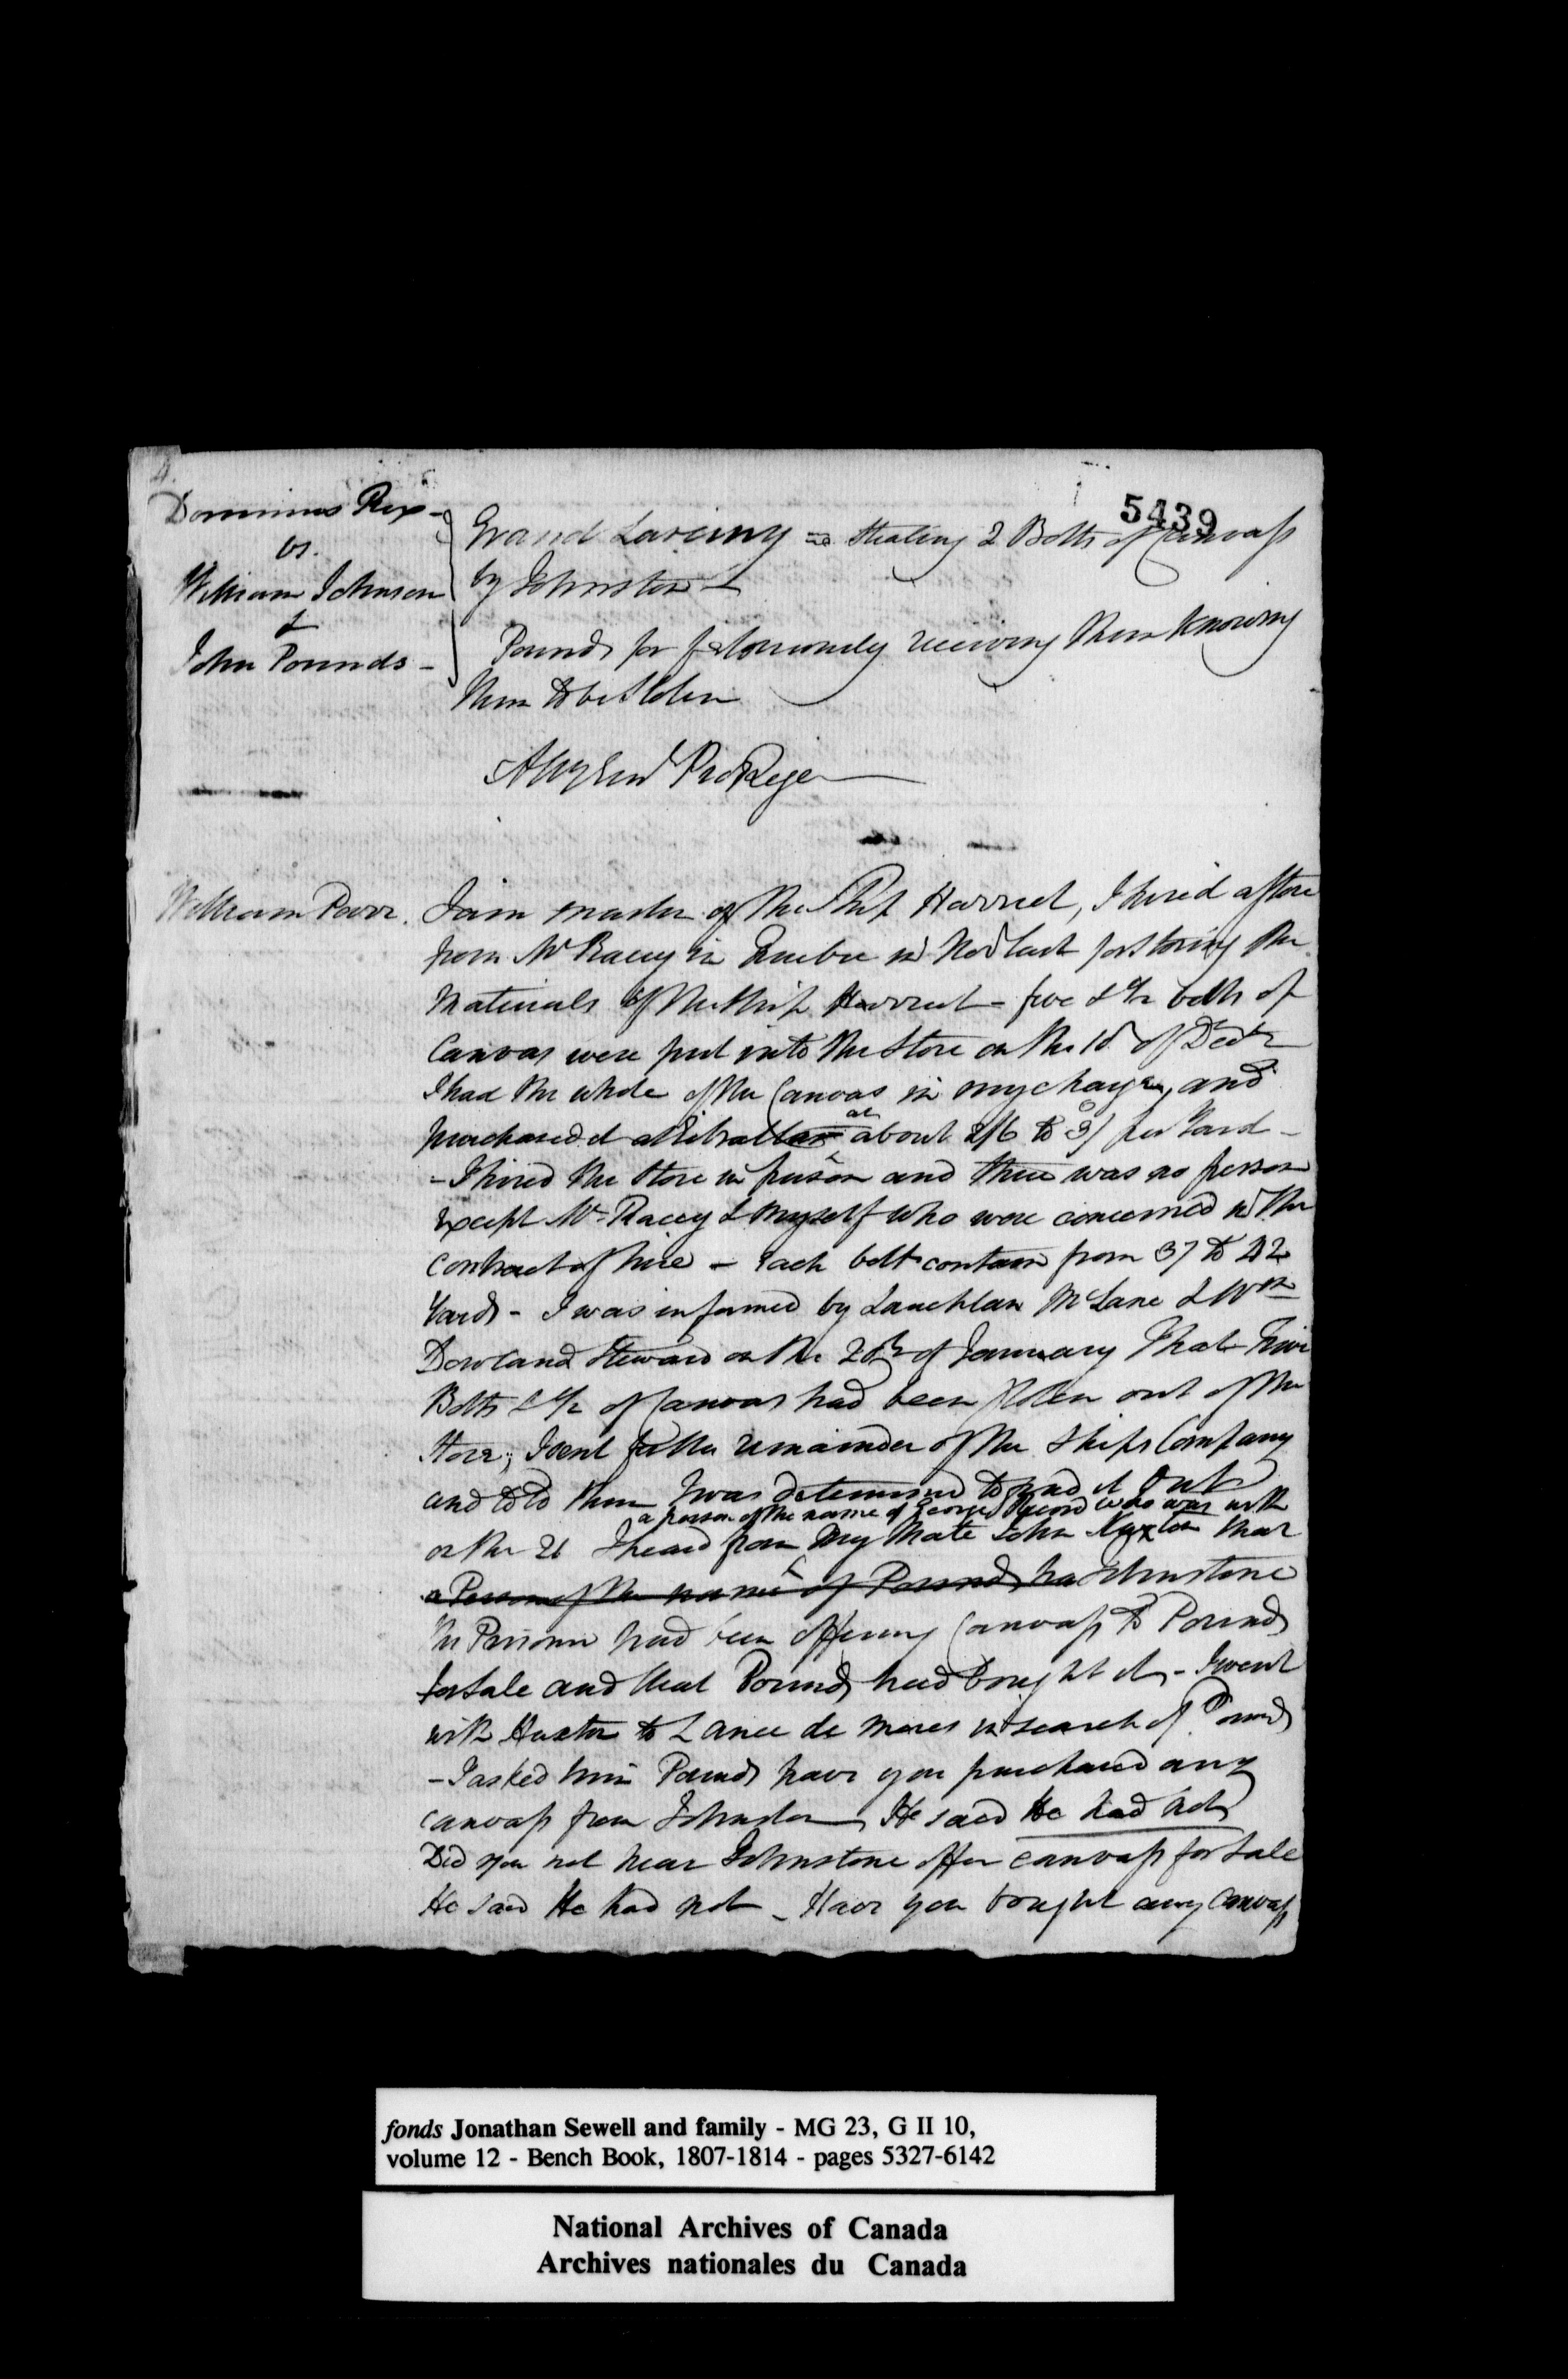 4.
5439
Dominus Rex -
vs.
William Johnson
&
John Pounds -
Grand Larceny = Stealing 2 Bolts of Canvass
by Johnston &
Pounds for feloniously receiving them knowing
them to be Stolen
Atty Genl Pro Rege
William Parr.
I am master of the Ship Harriet, I hired a Store
from Mr Racey in Quebec in Nov last for storing the
Materials of the Ship Harriet - five & 1/2 bolts of
Canvas were put into the Store on the 10 of Decr
I had the whole of the Canvas in my charge, and
purchased it at Gibraltar at about 2/6 to 3/ per Yard -
- I hired the Store in person and there was no person
except Mr Racey & myself who were concerned in the
contract of hire - Each bolt contain from 37 to 42
Yards - I was informed by Lauchlan McLane & Wm
Dowland Steward on the 20th of January That Five
Bolts & 1/2 of Canvas had been stolen out of the
Store; I sent for the remainder of the Ships Company
and told them I was determined to find it out
a person of the name of George who was with
on the 21 I heard from my Mate John Huxton that
a Person of the name of Pounds ha Johnstone
the Prisoner had been offering Canvass to Pounds
for Sale and that Pounds had bought it - I went
with Huxton to L'ance des meres in search of Pounds
- I asked him Pounds have you purchased any
canvass from Johnston He said He had not
Did you not hear Johnstone offer canvass for Sale
He said He had not - Have you bought any Canvass
fonds Jonathan Sewell and family - MG 23, G II 10,
volume 12 - Bench Book, 1807-1814 - pages 5327-6142
National Archives of Canada
Archives nationales du Canada